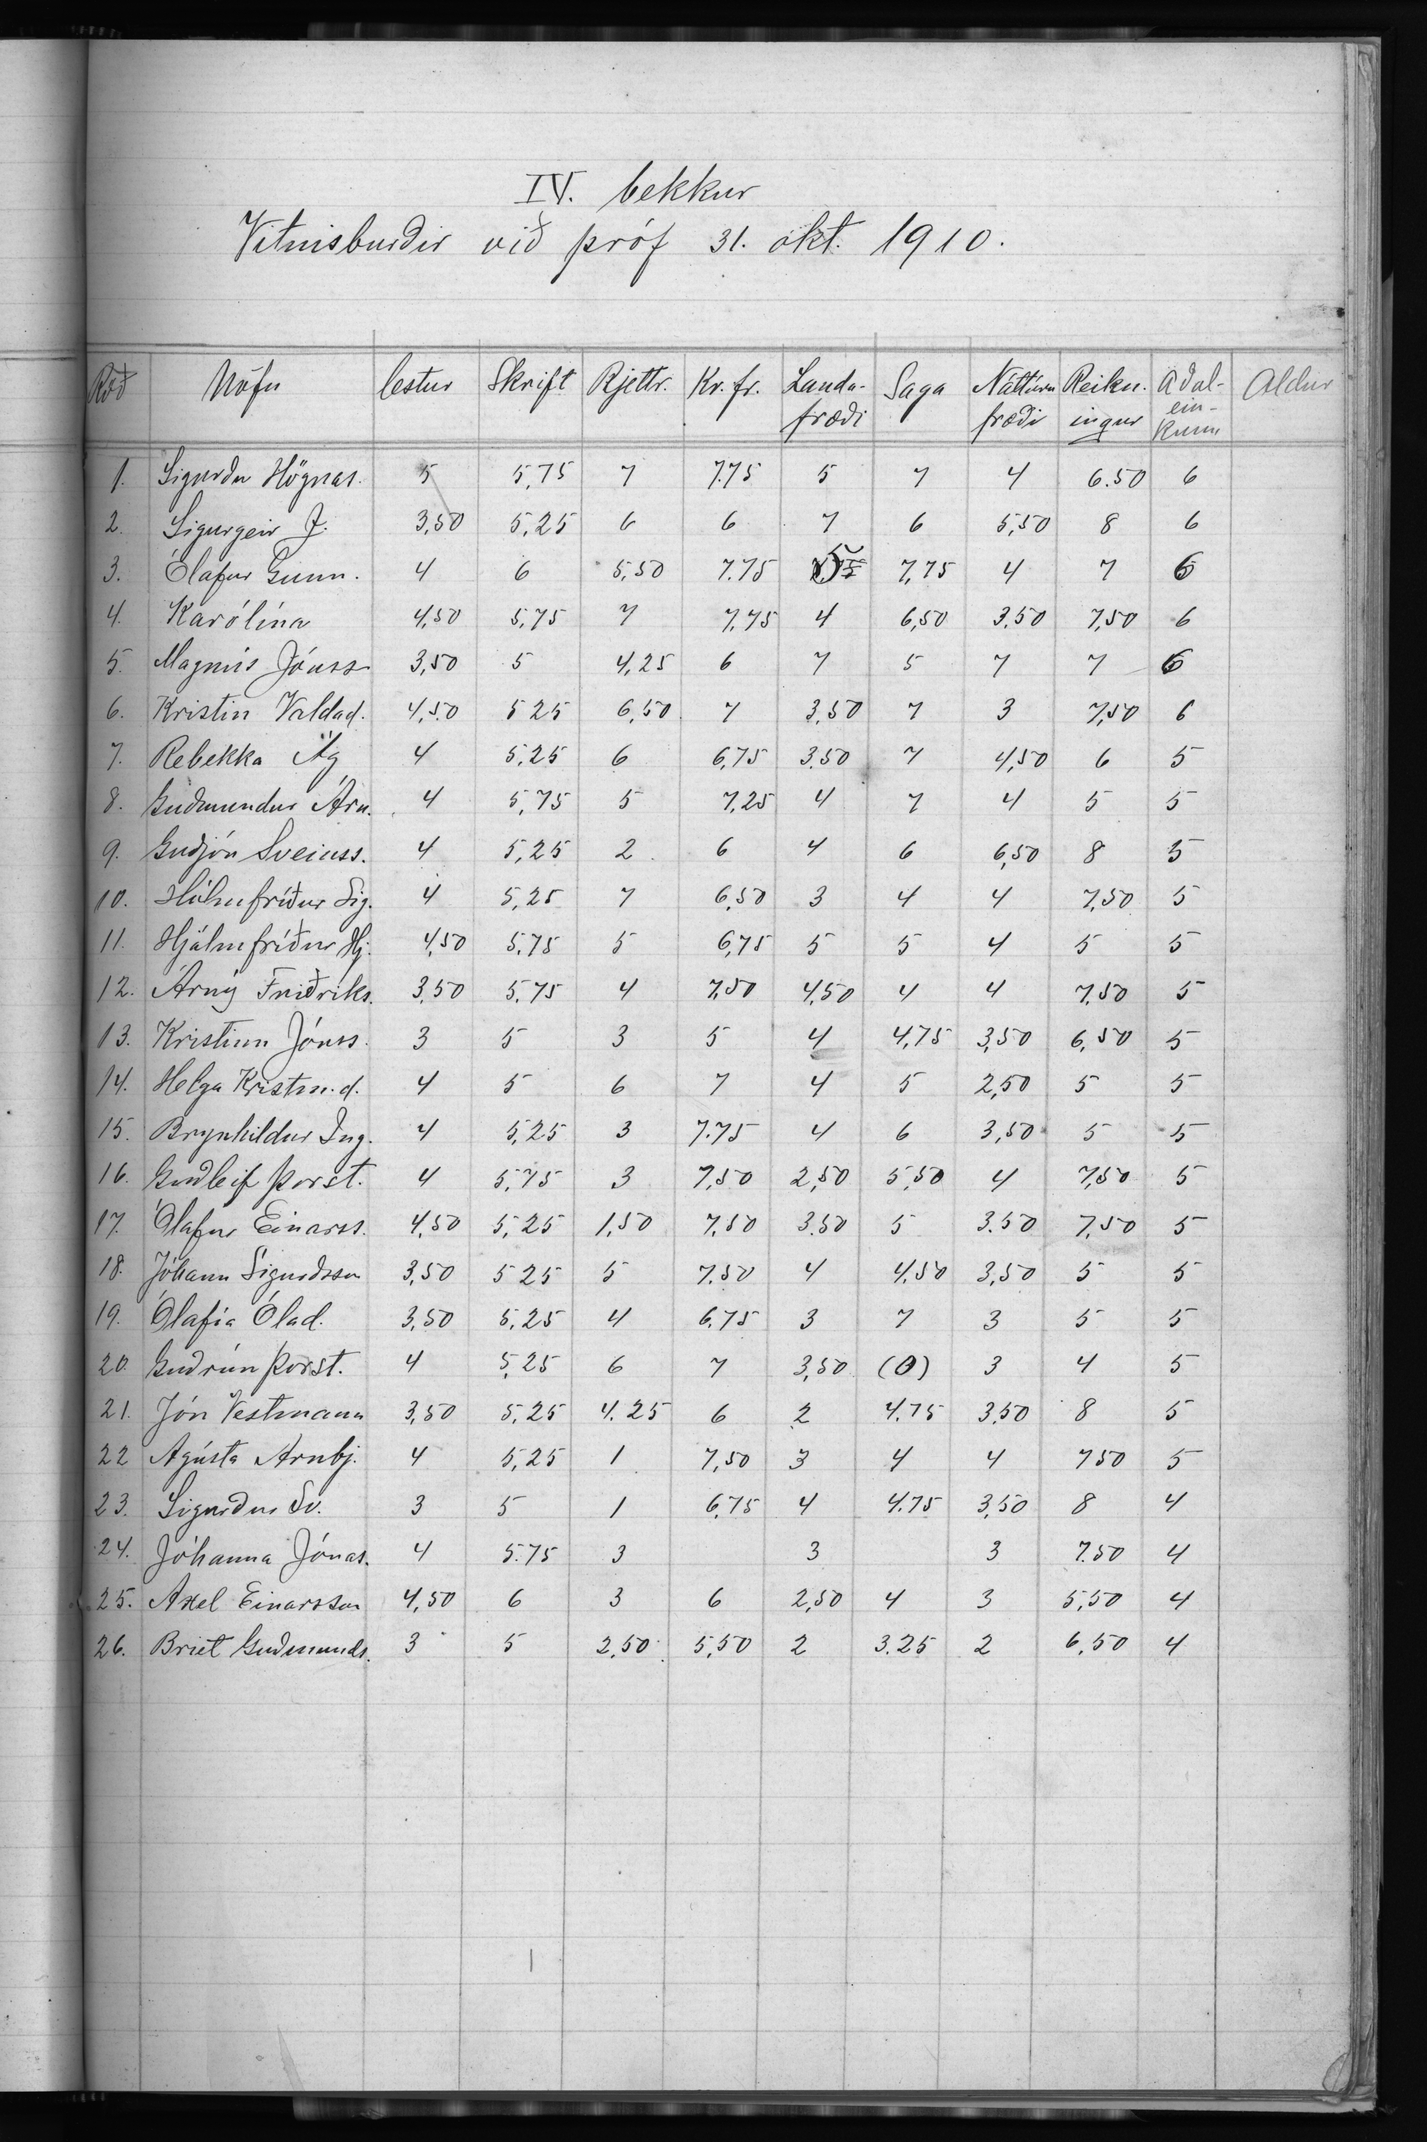 IV. bekkur
Vitnisburðir við próf 31. okt. 1910.
Röð Nöfn lestur Skrift Rjettr. Kr. fr. Landa- Saga Náttúru Reikn. Aðal- Aldur
fræði fræði ingur ein-
kunn
1. Sigurður Högnas. 5 5,75 7 7.75 5 7 4 6.50 6
2. Sigurgeir J. 3,50 5,25 6 6 7 6 5,50 8 6
3. Ólafur Gunn. 4 6 5,50 7.75 5 7,75 4 7 6
4. Karólína 4,50 5,75 7 7,75 4 6,50 3,50 7,50 6
5. Magnús Jónss 3,50 5 4,25 6 7 5 7 7 6
6. Kristín Valdad. 4,50 5 25 6,50 7 3,50 7 3 7,50 6
7. Rebekka Ág 4 5,25 6 6,75 3.50 7 4,50 6 5
8. Guðmundur Árn. 4 5,75 5 7,25 4 7 4 5 5
9. Guðjón Sveinss. 4 5,25 2 6 4 6 6,50 8 5
10. Hólmfríður Sig. 4 5,25 7 6,50 3 4 4 7,50 5
11. Hjálmfríður Hj. 4,50 5,75 5 6,75 5 5 4 5 5
12. Árný Friðriks. 3,50 5,75 4 7,50 4,50 4 4 7,50 5
13. Kristinn Jónss. 3 5 3 5 4 4,75 3,50 6,50 5
14. Helga Kristm.d. 4 5 6 7 4 5 2,50 5 5
15. Brynhildur Ing. 4 5,25 3 7.75 4 6 3,50 5 5
16. Guðleif Þorst. 4 5,75 3 7,50 2,50 5,50 4 7,50 5
17. Ólafur Einarss. 4,50 5,25 1,50 7,50 3.50 5 3.50 7,50 5
18. Jóhann Sigurðsson 3,50 5 25 5 7.50 4 4,50 3,50 5 5
19. Ólafía Ólad. 3,50 5,25 4 6,75 3 7 3 5 5
20 Guðrún Þorst. 4 5,25 6 7 3,50 (0) 3 4 5
21. Jón Vestmann 3,50 5,25 4.25 6 2 4.75 3,50 8 5
22 Ágústa Arnbj. 4 5,25 1 7,50 3 4 4 7 50 5
23. Sigurður Sv. 3 5 1 6,75 4 4.75 3,50 8 4
24. Jóhanna Jónas. 4 5.75 3 3 3 7.50 4
25. Axel Einarsson 4,50 6 3 6 2,50 4 3 5,50 4
26. Briet Guðmunds. 3 5 2,50 5,50 2 3.25 2 6,50 4